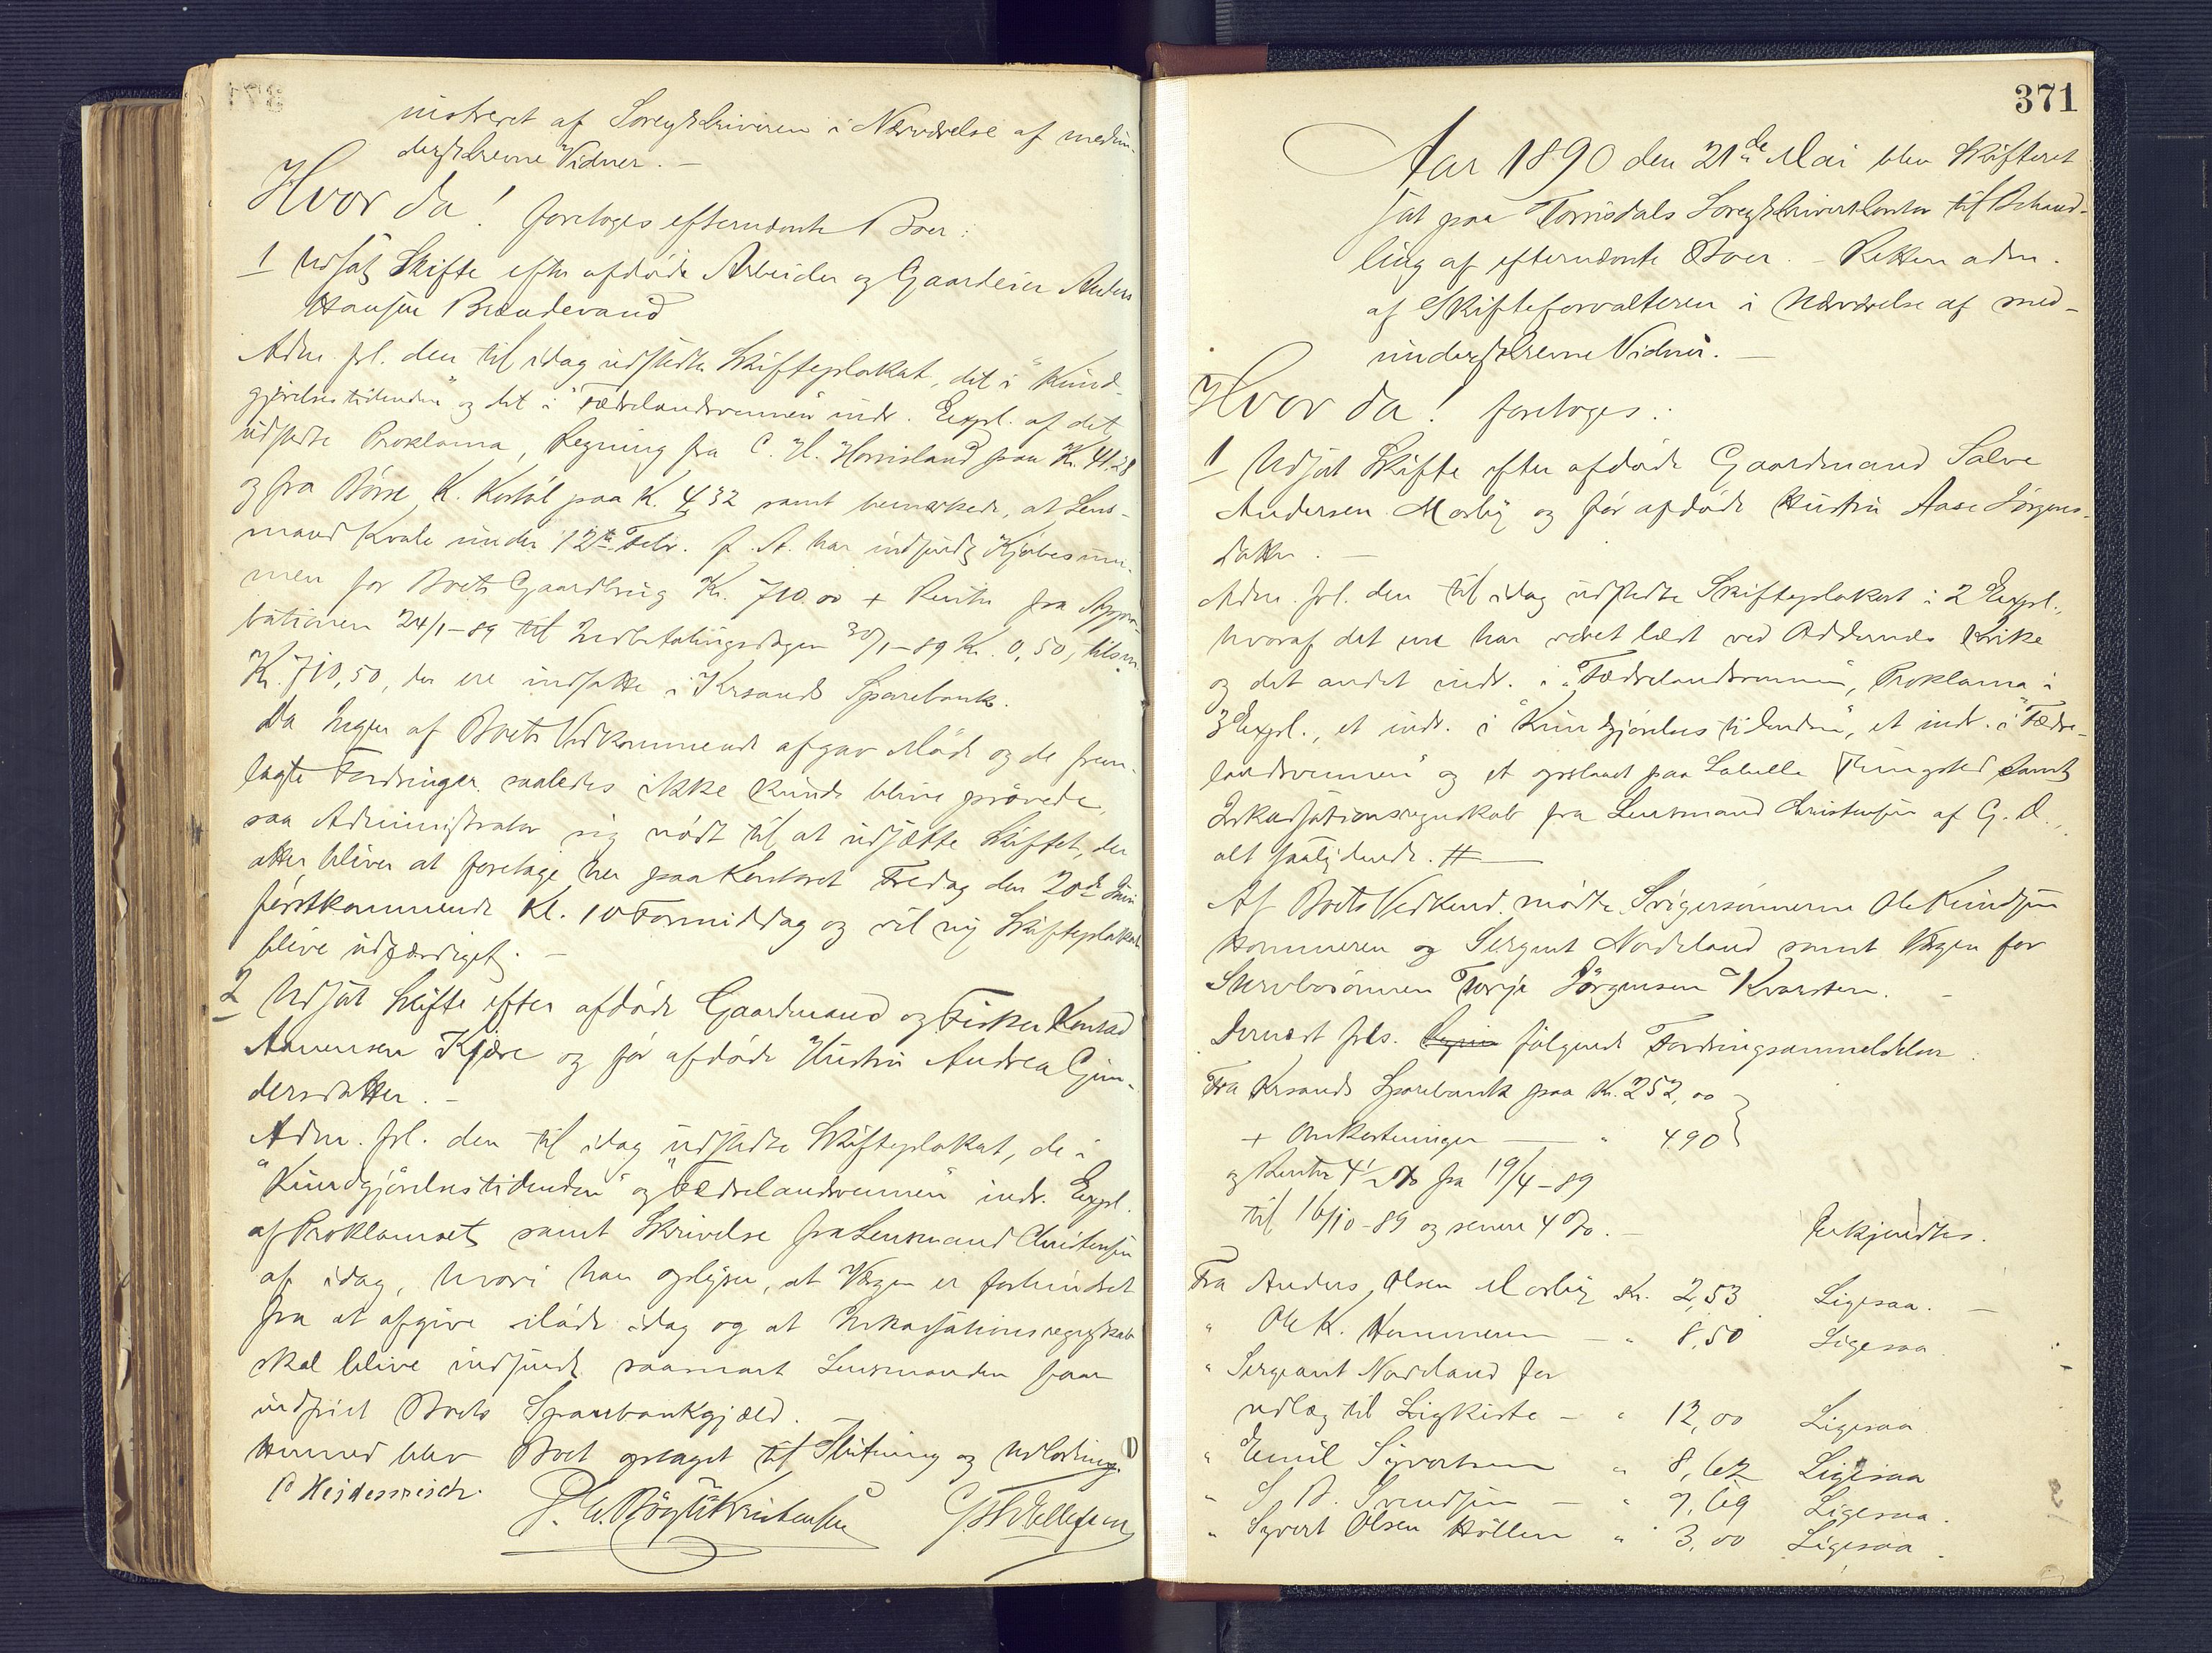 nistreret af Sorenskriveren i Nærværelse af medun-
derskrevne Vidner. —
Hvor da! foretoges efternævnte Boer:
1 Udsat Skifte efter afdøde Arbeider og Gaardeier Anders
Hansen Brændevand
Adm. frl. den til idag udstedte Skifteplakat, det i "Kund-
gjørelsestidenden" og det i "Fædrelandsvennen" indr. Expl. af det
udstedte Proklama, Regning fra C. H. Homisland paa Kr. 41.28
og fra Børre K. Kostøl paa K. 4,32 samt bemærkede, at Lens-
mand Kvale under 12te Febr. f. A. har indsendt Kjøbesum-
men for Boets Gaardbrug Kr. 710.00 + Renter fra Appro-
bationen 24/1-89 til Indbetalingsdagen 30/1-89 Kr. 0,50, tilsm.
Kr. 710,50, der ere indsatte i Krsands Sparebank.
Da Ingen af Boets Vedkommende afgav Møde og de frem-
lagte Fordringer saaledes ikke kunde blive prøvede,
saa Administrator sig nødt til at udsætte Skiftet, der
atter bliver at foretage her paa Kontoret Fredag den 20de Juni
førstkommende Kl. 10 Formiddag og vil ny Skifteplakat
blive udfærdiget. —
2 Udsat Skifte efter afdøde Gaardmand og Fisker Konrad
Aanensen Kjære og før afdøde Hustru Andrea Gun-
dersdatter. —
Adm. frl. den til idag udstedte Skifteplakat, de i
"Kundgjørelsestidenden" og "Fædrelandsvennen" indr. Expl.
af Proklamaet samt Skrivelse fra Lensmand Christensen
af idag, hvori han oplyser, at Værgen er forhindret
fra at afgive Møde idag og at Inkassationsregnskab
skal blive indsendt saasnart Lensmanden faar
indfriet Boets Sparebankgjæld.
Hermed blev Boet optaget til Slutning og Udlodning.
P Heidenreich.
371
Aar 1890 den 21de Mai blev Skifteret
sat paa Torrisdals Sorenskriverkontor til Behand-
ling af efternævnte Boer. — Retten adm.
af Skifteforvalteren i Nærværelse af med-
underskrevne Vidner. —
Hvor da! foretoges:
1 Udsat Skifte efter afdøde Gaardmand Salve
Andersen Mosby og før afdøde Hustru Aase Jørgens-
datter. —
Adm. frl. den til idag udstedte Skifteplakat i 2 Expl.,
hvoraf det ene har været læst ved Oddernes Kirke
og det andet indr. i "Fædrelandsvennen", Proklama i
3 Expl., et indr. i "Kundgjørelsestidenden", et indr. i "Fædre-
landsvennen" og et opslaaet paa Labelle Thingsted samt
Inkassationsregnskab fra Lensmand Christensen af G. D.,
alt saalydende. #
Af Boets Vedkend. mødte Svigersønnerne Ole Knudsen
Hommeren og Sergent Nordeland samt Værgen for
Stervbosønnen Terje Jørgensen Kvarsten. —
Dernæst frls. følgende Fordringsanmeldelser:
Fra Krsands Sparebank paa Kr. 252,00
+ Omkostninger — " 4.90
og Renter 4½ % fra 19/4-89
til 16/10-89 og senere 4 %. — Erkjendtes.
Fra Anders Olsen Mosby Kr. 2,53 Ligesaa. —
" Ole K. Hommeren — " 8,50 Ligesaa
" Sergeant Nordeland for
udlæg til Ligkiste — " 12,00 Ligesaa
" Emil Syvertsen " 8,62 Ligesaa
" S. A. Svendsen — " 9,69 Ligesaa.
" Syvert Olsen Høllen " 3,00 Ligesaa.